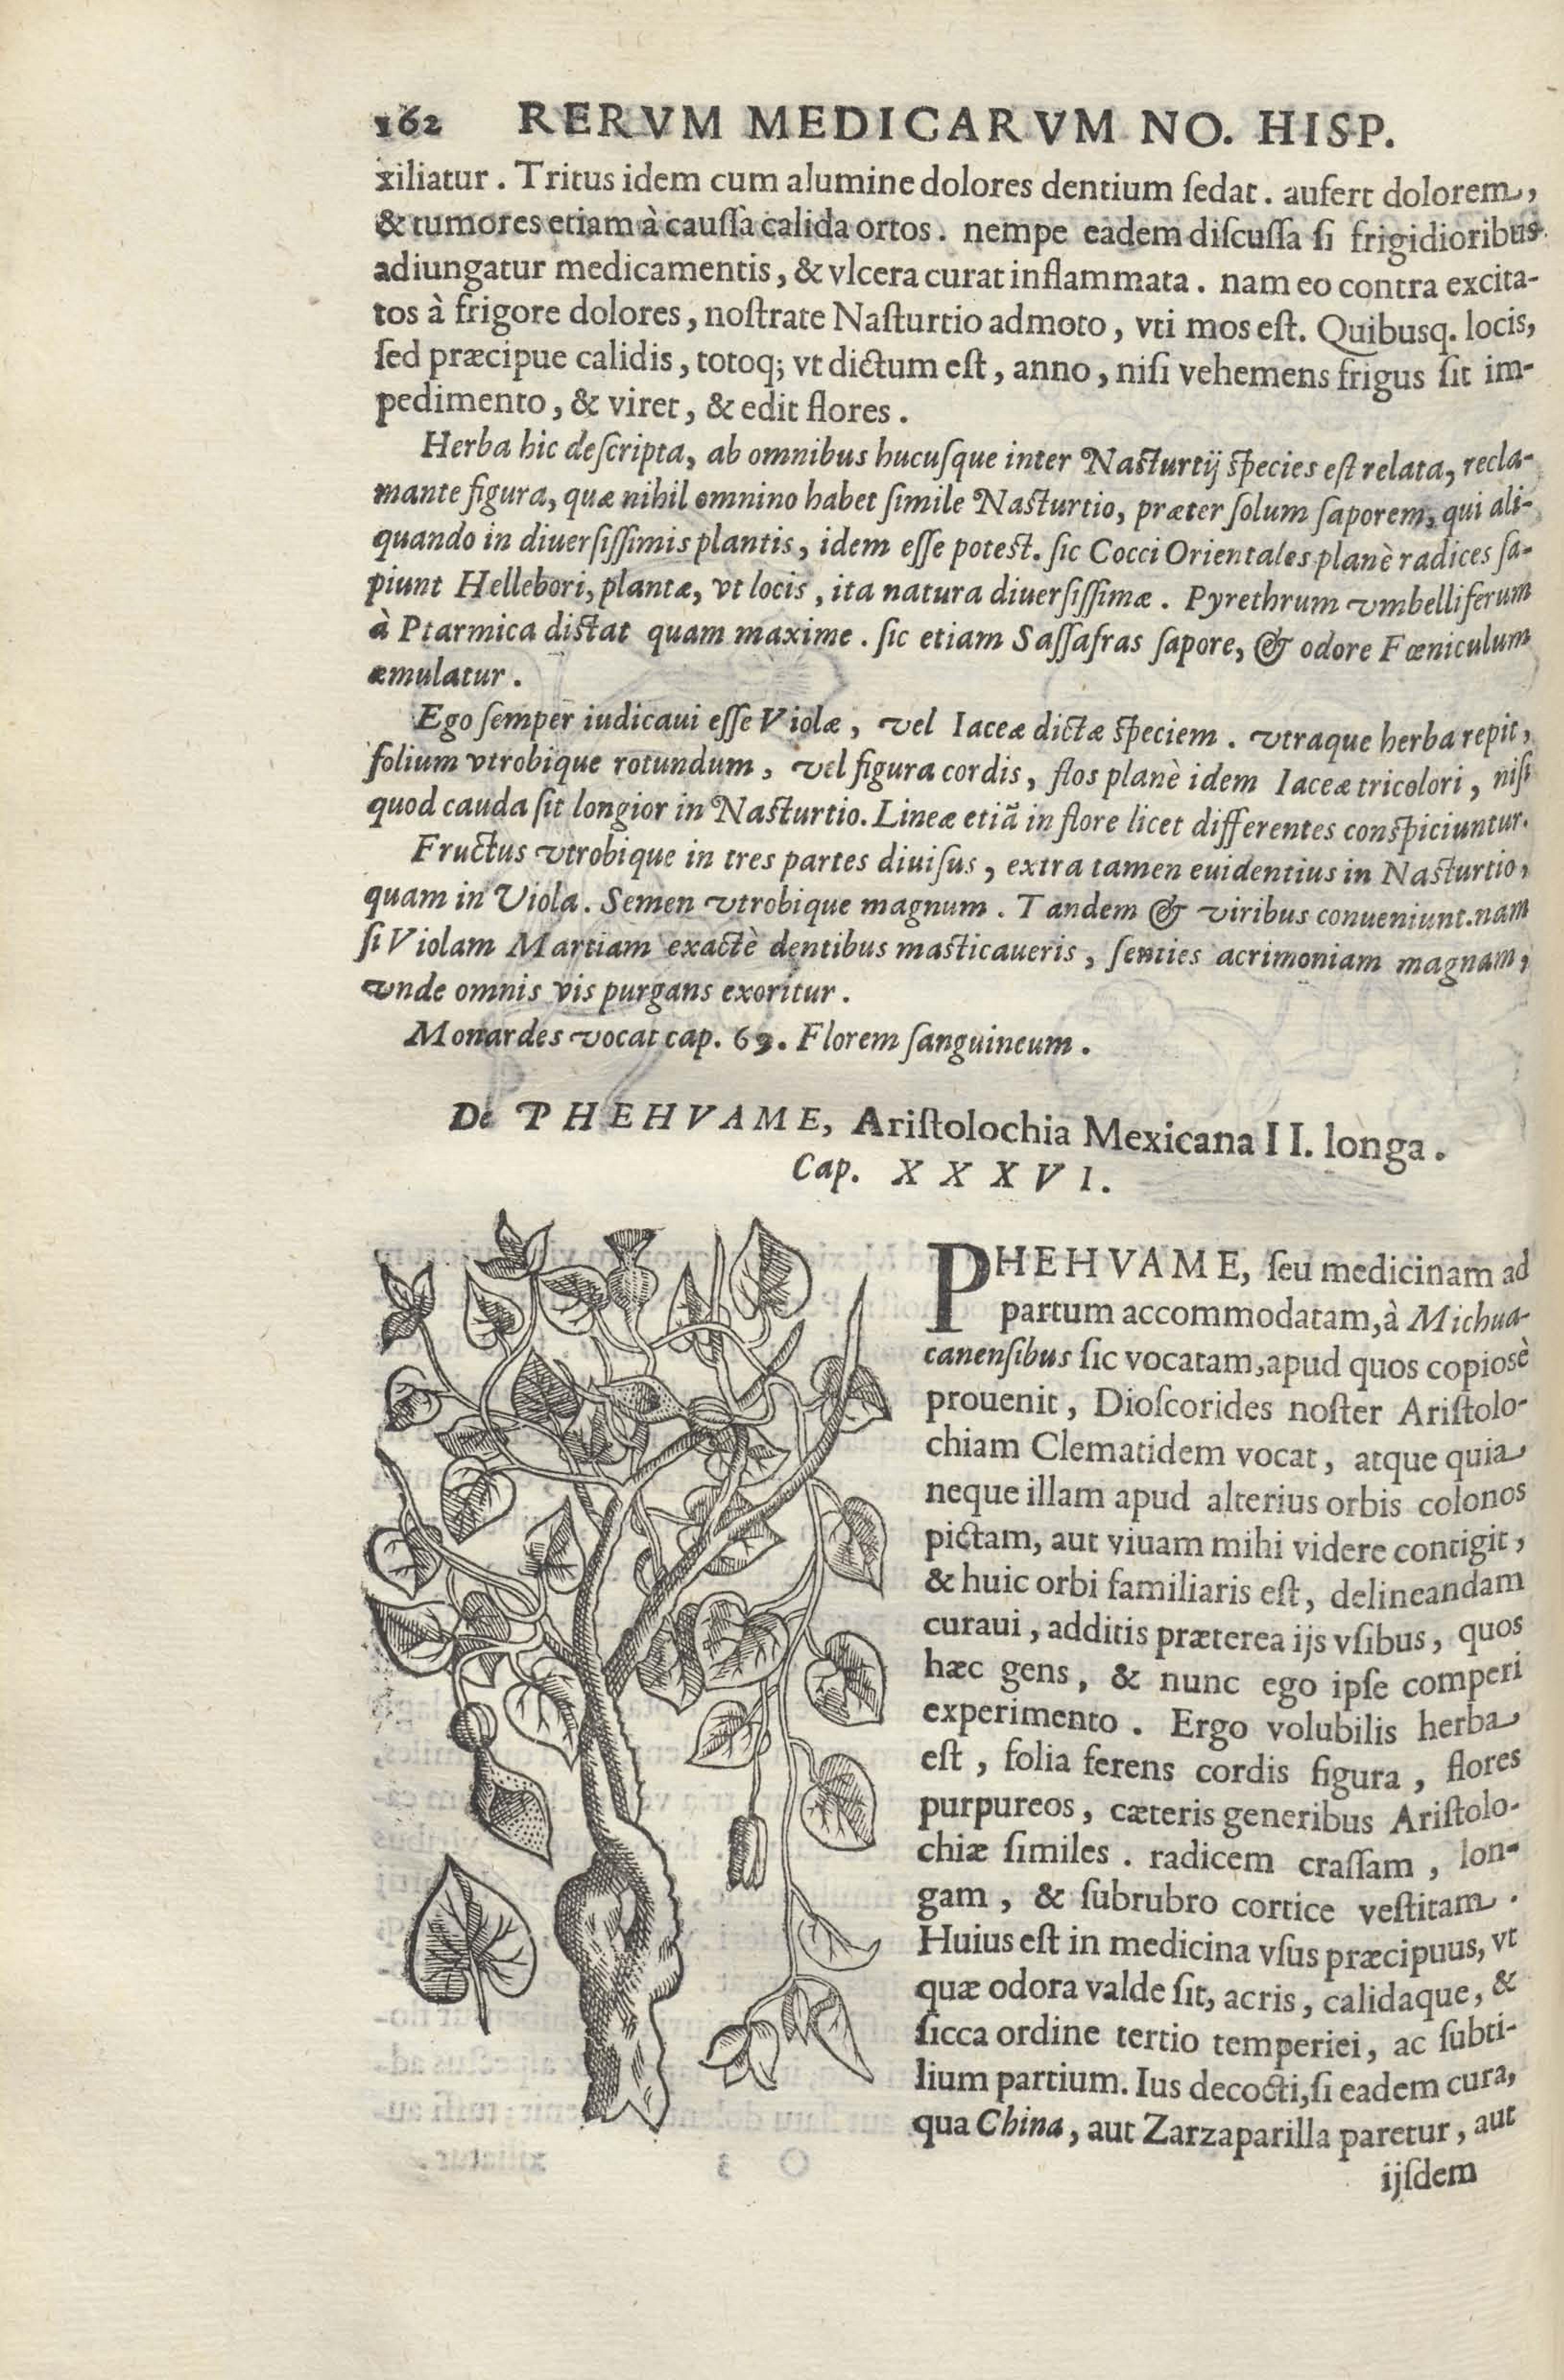 162 RERVM MEDICARVM NO. HISP.
xiliatur. Tritus idem cum alumine dolores dentium ſedat. aufert dolorem,
& tumores etiam à cauſſa calida ortos. nempe eadem diſcuſſa ſi frigidioribus
adiungatur medicamentis, & vlcera curat inflammata. nam eo contra excita-
tos à frigore dolores, noſtrate Naſturtio admoto, vti mos eſt. Quibusq. locis,
ſed præcipue calidis, totoq; vt dictum eſt, anno, niſi vehemens frigus ſit im-
pedimento, & viret, & edit flores.
Herba hic deſcripta, ab omnibus hucuſque inter Naſturtij ſpecies eſt relata, recla-
mante figura, quæ nihil omnino habet ſimile Naſturtio, præter ſolum ſaporem, qui ali-
quando in diuerſiſſimis plantis, idem eſſe poteſt. ſic Cocci Orientales planè radices ſa-
piunt Hellebori, plantæ, vt locis, ita natura diuerſiſſimæ. Pyrethrum vmbelliferum
à Ptarmica diſtat quam maxime. ſic etiam Saſſafras ſapore, & odore Fœniculum
æmulatur.
Ego ſemper iudicaui eſſe Violæ, vel Iaceæ dictæ ſpeciem. vtraque herba repit,
folium vtrobique rotundum, vel figura cordis, flos planè idem Iaceæ tricolori, niſi
quod cauda ſit longior in Naſturtio. Lineæ etiã in flore licet differentes conſpiciuntur.
Fructus vtrobique in tres partes diuiſus, extra tamen euidentius in Naſturtio,
quam in Viola. Semen vtrobique magnum. Tandem & viribus conueniunt. nam
ſi Violam Martiam exactè dentibus maſticaueris, ſenties acrimoniam magnam,
vnde omnis vis purgans exoritur.
Monardes vocat cap. 69. Florem ſanguineum.
De PHEHVAME, Ariſtolochia Mexicana II. longa.
Cap. XXXVI.
PHEHVAME, ſeu medicinam ad
partum accommodatam, à Michua-
canenſibus ſic vocatam, apud quos copiosè
prouenit, Dioſcorides noſter Ariſtolo-
chiam Clematidem vocat, atque quia
neque illam apud alterius orbis colonos
pictam, aut viuam mihi videre contigit,
& huic orbi familiaris eſt, delineandam
curaui, additis præterea ijs vſibus, quos
hæc gens, & nunc ego ipſe comperi
experimento. Ergo volubilis herba
eſt, folia ferens cordis figura, flores
purpureos, cæteris generibus Ariſtolo-
chiæ ſimiles. radicem craſſam, lon-
gam, & ſubrubro cortice veſtitam.
Huius eſt in medicina vſus præcipuus, vt
quæ odora valde ſit, acris, calidaque, &
ſicca ordine tertio temperiei, ac ſubti-
lium partium. Ius decocti, ſi eadem cura,
qua China, aut Zarzaparilla paretur, aut
ijſdem